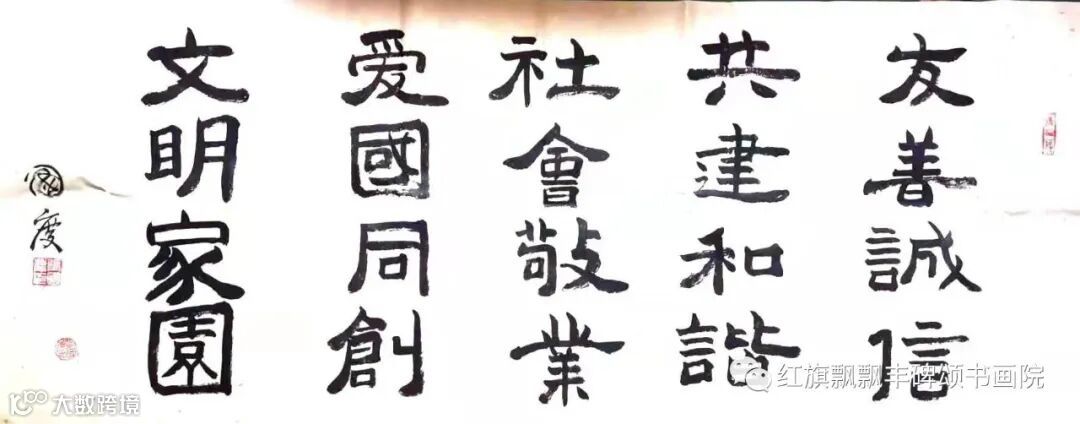 友善誠信
共建和諧
社會敬業
爱國同創
文明家園
國度
红旗飘飘丰碑颂书画院
大数跨境